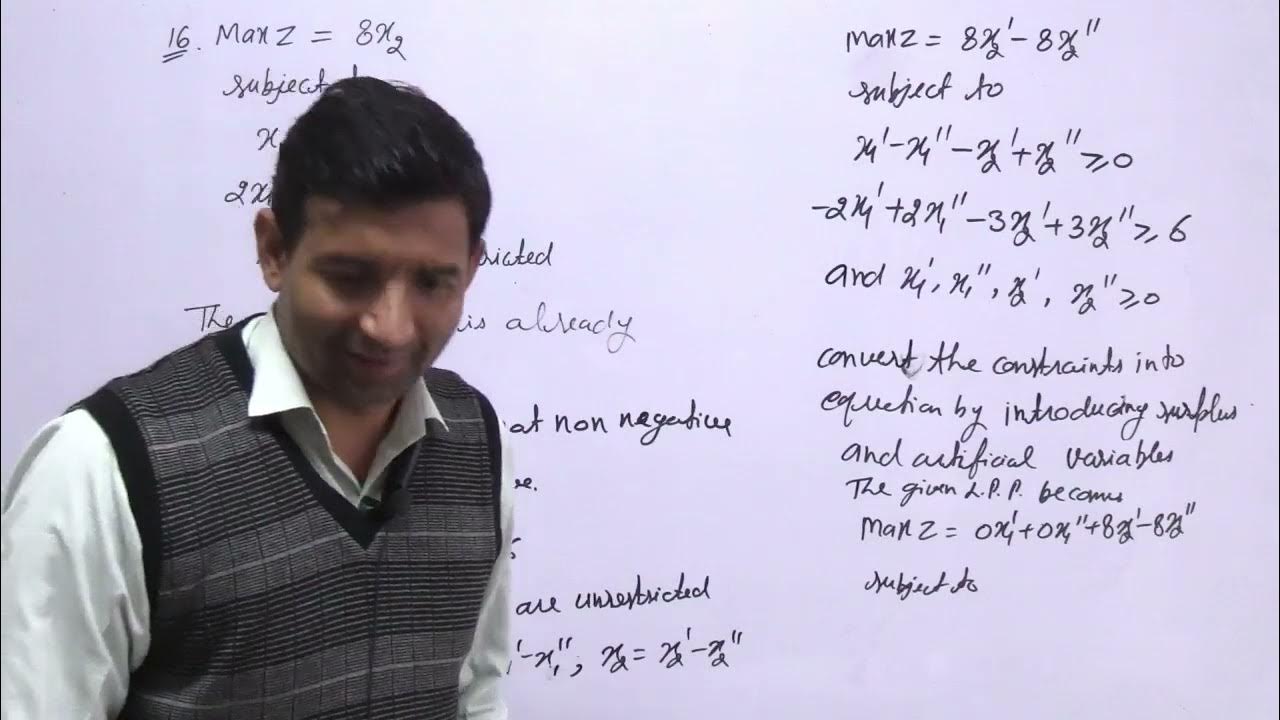 16. Max Z = 8x₂
subject
2x₁
The is already
at non negative
are unrestricted
x₁'' ; x₂ = x₂' - x₂''
Max Z = 8x₂' - 8x₂''
subject to
x₁' - x₁'' - x₂' + x₂'' ≥ 0
-2x₁' + 2x₁'' - 3x₂' + 3x₂'' ≥ 6
and x₁', x₁'', x₂', x₂'' ≥ 0
convert the constraints into
equction by introducing surplus
and artificial variables
The given L.P.P. becomes
Max Z = 0x₁' + 0x₁'' + 8x₂' - 8x₂''
subject to